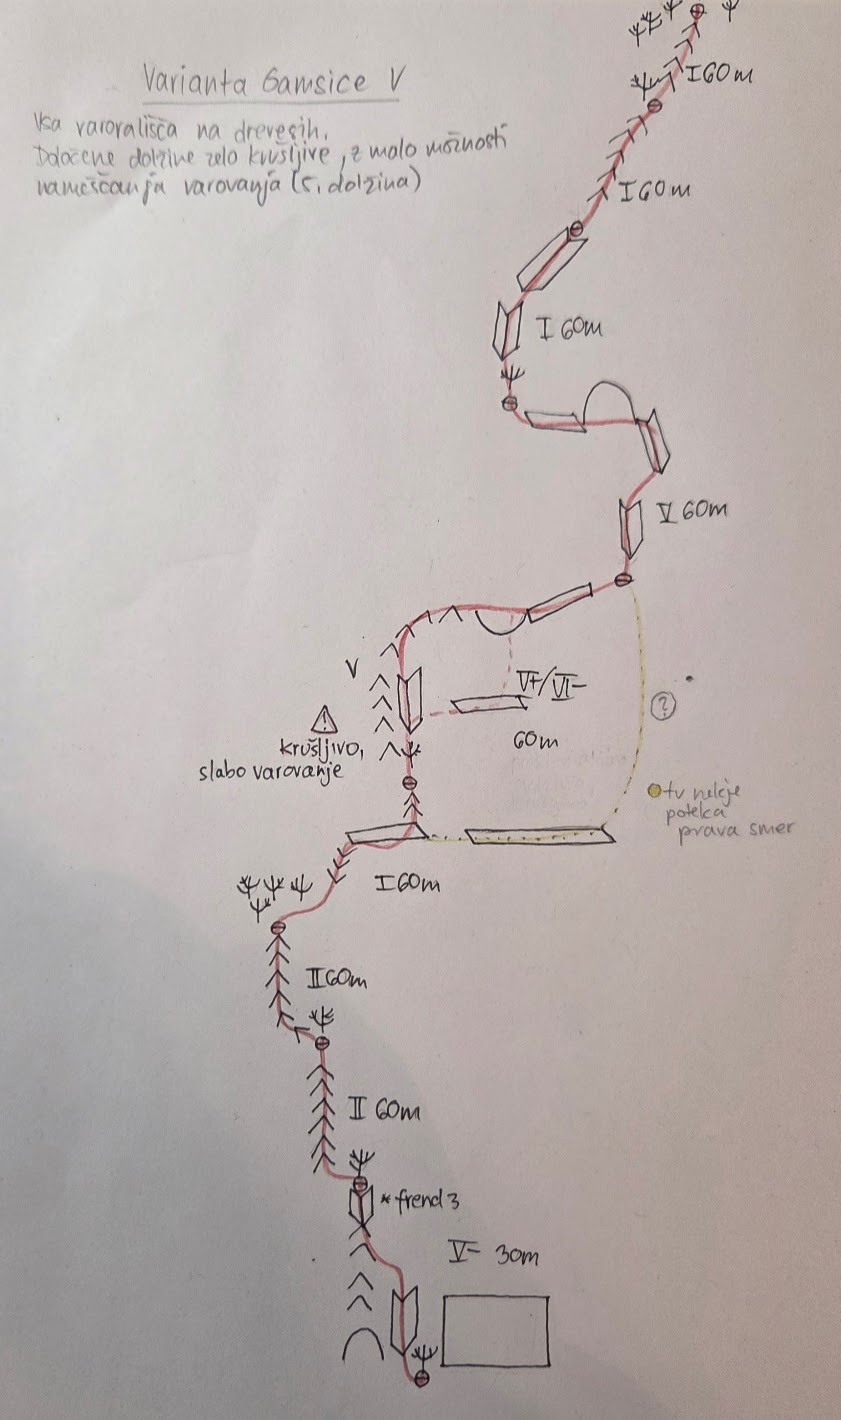 Varianta Gamsice V
Vsa varovališča na drevesih.
Določene dolžine zelo krušljive, z malo možnosti
nameščanja varovanja (5. dolžina)
I 60m
I 60m
I 60m
V 60m
V
V+/VI-
60m
?
krušljivo,
slabo varovanje
tu nekje
poteka
prava smer
I 60m
II 60m
II 60m
* frend 3
V- 30m